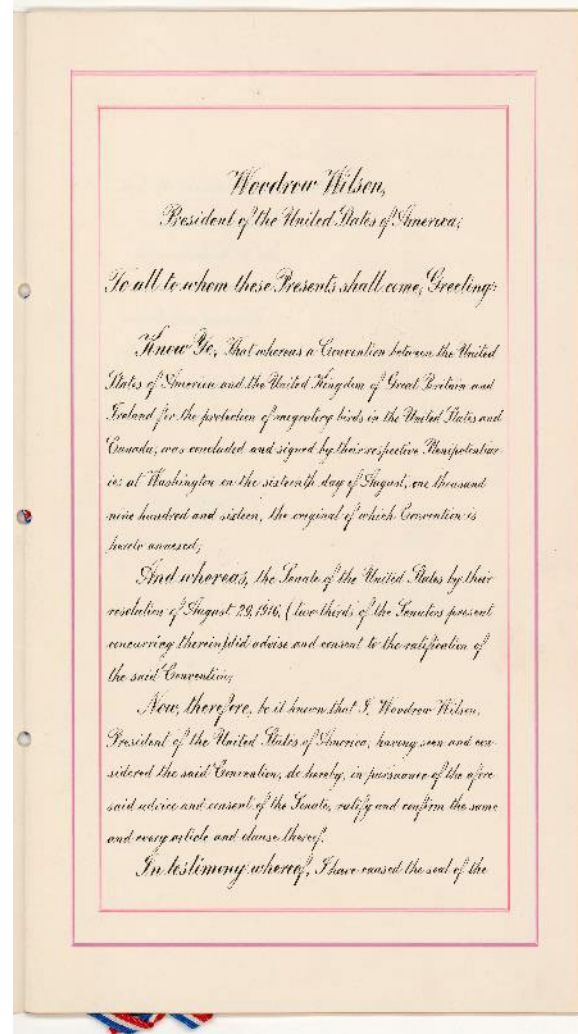 Woodrow Wilson,
President of the United States of America,
To all to whom these Presents shall come, Greeting:
Know Ye, That whereas a Convention between the United
States of America and the United Kingdom of Great Britain and
Ireland for the protection of migratory birds in the United States and
Canada, was concluded and signed by their respective Plenipotentiar-
ies at Washington on the sixteenth day of August, one thousand
nine hundred and sixteen, the original of which Convention is
hereto annexed;
And whereas, the Senate of the United States by their
resolution of August 29, 1916, (two-thirds of the Senators present
concurring therein) did advise and consent to the ratification of
the said Convention;
Now, therefore, be it known that I, Woodrow Wilson,
President of the United States of America, having seen and con-
sidered the said Convention, do hereby, in pursuance of the afore-
said advice and consent of the Senate, ratify and confirm the same
and every article and clause thereof.
In testimony whereof, I have caused the seal of the